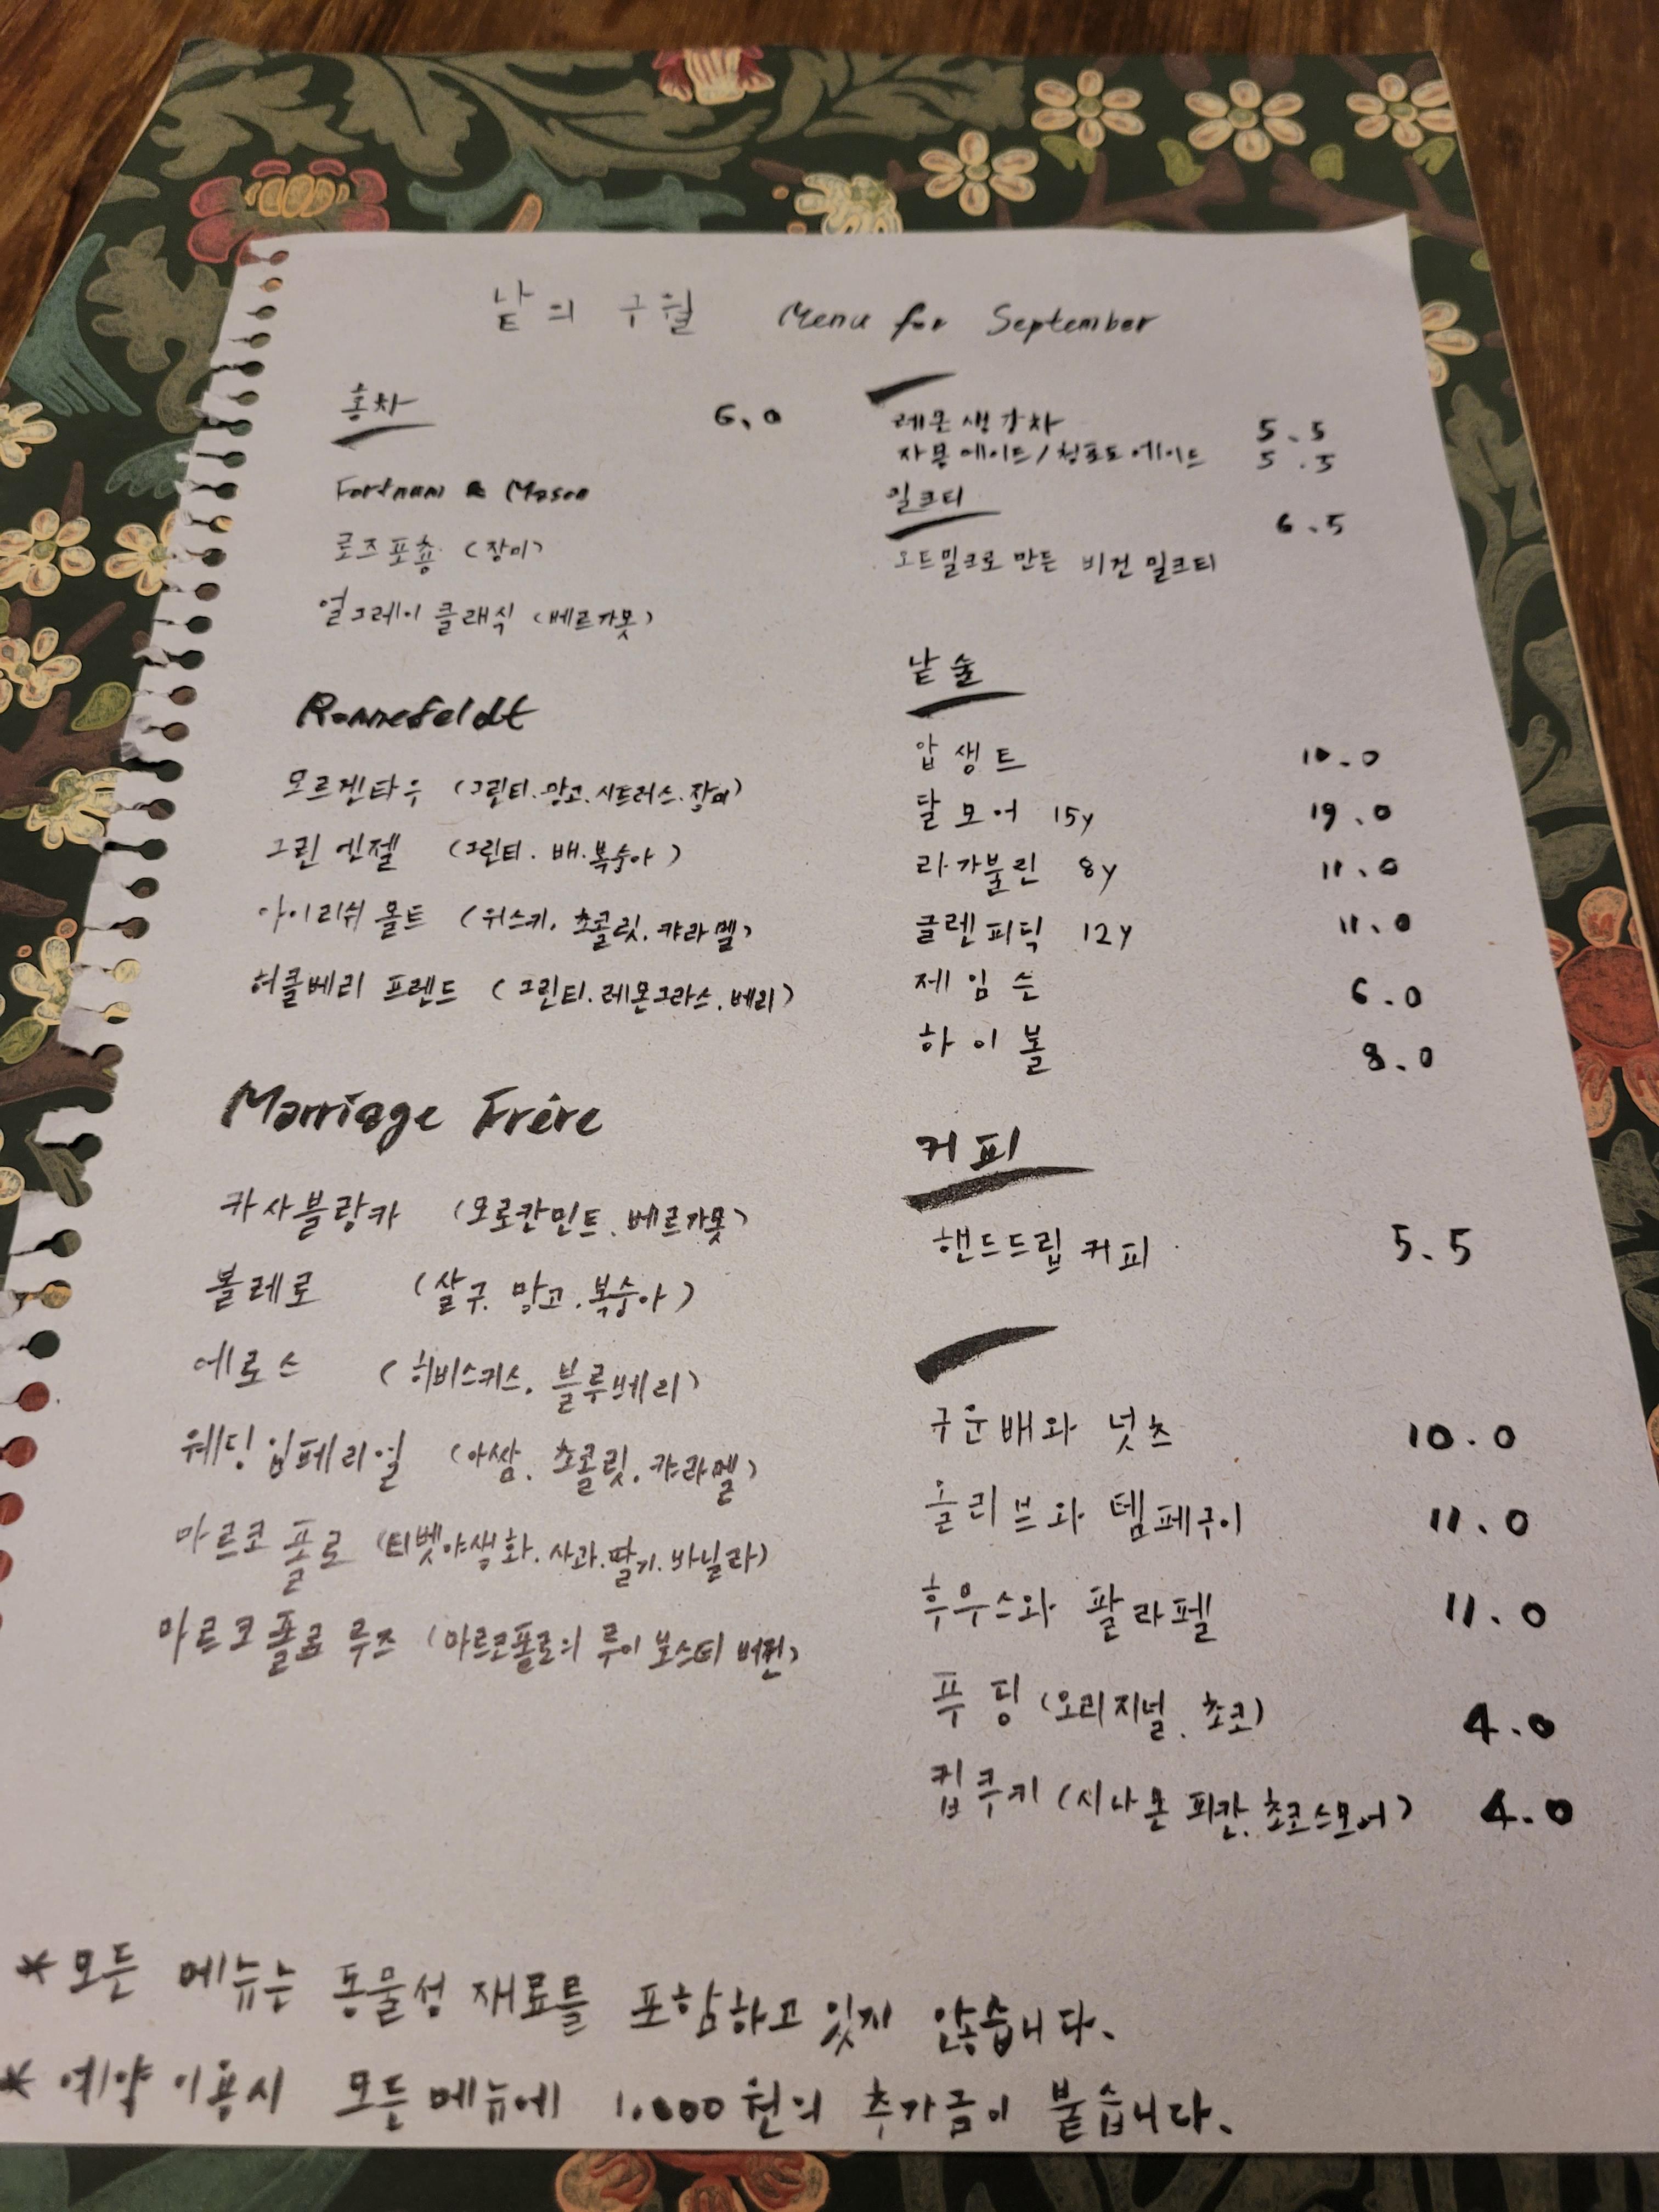 낱의 구월 Menu for September
홍차 6.0
Fortnum & Mason
로즈포총 (장미)
얼그레이 클래식 (베르가못)
Ronnefeldt
모르겐타우 (그린티.망고.시트러스.장미)
그린엔젤 (그린티. 배.복숭아)
아이리쉬 몰트 (위스키, 초콜릿, 캬라멜)
허클베리 프렌드 (그린티.레몬그라스.베리)
Marriage Frére
카사블랑카 (모로칸민트. 베르가못)
볼레로 (살구. 망고.복숭아)
에로스 (히비스커스. 블루베리)
웨딩 임페리얼 (아쌈. 초콜릿. 캬라멜)
마르코 폴로 (티벳야생화.사과.딸기.바닐라)
마르코폴로 루즈 (마르코폴로의 루이보스티 버젼)
레몬생강차 5.5
자몽에이드/청포도에이드 5.5
밀크티 6.5
오트밀크로 만든 비건 밀크티
낱술
압생트 10.0
탈모어 15y 19.0
라가불린 8y 11.0
글렌피딕 12y 11.0
제임슨 6.0
하이볼 8.0
커피
핸드드립커피 5.5
구운배와 넛츠 10.0
올리브와 템페구이 11.0
후무스와 팔라펠 11.0
푸딩 (오리지널. 초코) 4.0
컵쿠키 (시나몬 피칸. 초코스모어) 4.0
*모든 메뉴는 동물성 재료를 포함하고 있지 않습니다.
*예약 이용시 모든 메뉴에 1,000원의 추가금이 붙습니다.